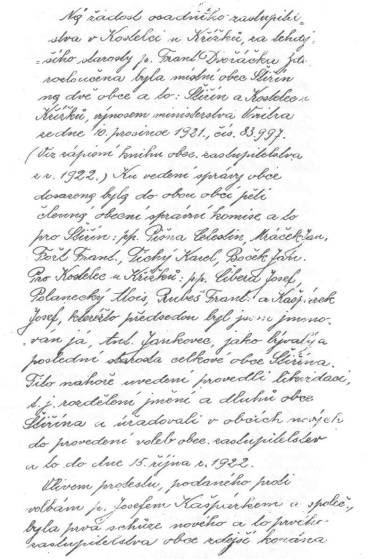 Na žádost osadního zastupitel-
stva v Kostelci u Křížků, za tehdej-
šího starosty p. Frant. Dvořáčka
rozloučena byla místní obec Štiřín
na dvě obce a to: Štiřín a Kostelec u
Křížků, výnosem ministerstva vnitra
ze dne 10. prosince 1921, čís. 83.997.
(Viz zápisní knihu obec. zastupitelstva
z r. 1922.) Ku vedení správy obce
dosazeny byly do obou obcí pěti
členné obecní správní komise a to
pro Štiřín: pp. Celestin, Mráček Jan,
Frant., Tichý Karel, Boček Jan.
Pro Kostelec u Křížků: pp. Libera Josef,
Polanecký Alois, Rubeš Frant. a Kašpárek
Josef, kteréžto předsedou byl jmeno-
ván já, Ant. Jankovec, jako bývalý a
poslední starosta celkové obce Štiřína.
Tito nahoře uvedení provedli likvidaci,
t. j. rozdělení jmění a dluhů obce
Štiřína a úřadovali v obcích nových
do provedení voleb obec. zastupitelstev
a to do dne 15. října r. 1922.
Vlivem protestu, podaného proti
volbám p. Josefem Kašpárkem a společ.,
byla prvá schůze nového a to prvého
zastupitelstva obce zdejší konána